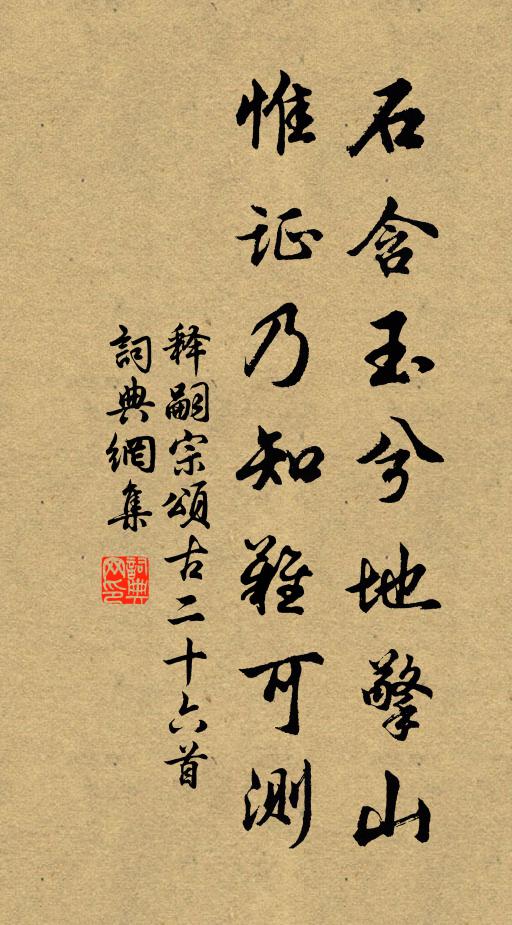 石含玉兮地擎山
惟证乃知難可測
释嗣宗頌古二十六首
詞典網集
詞典網印